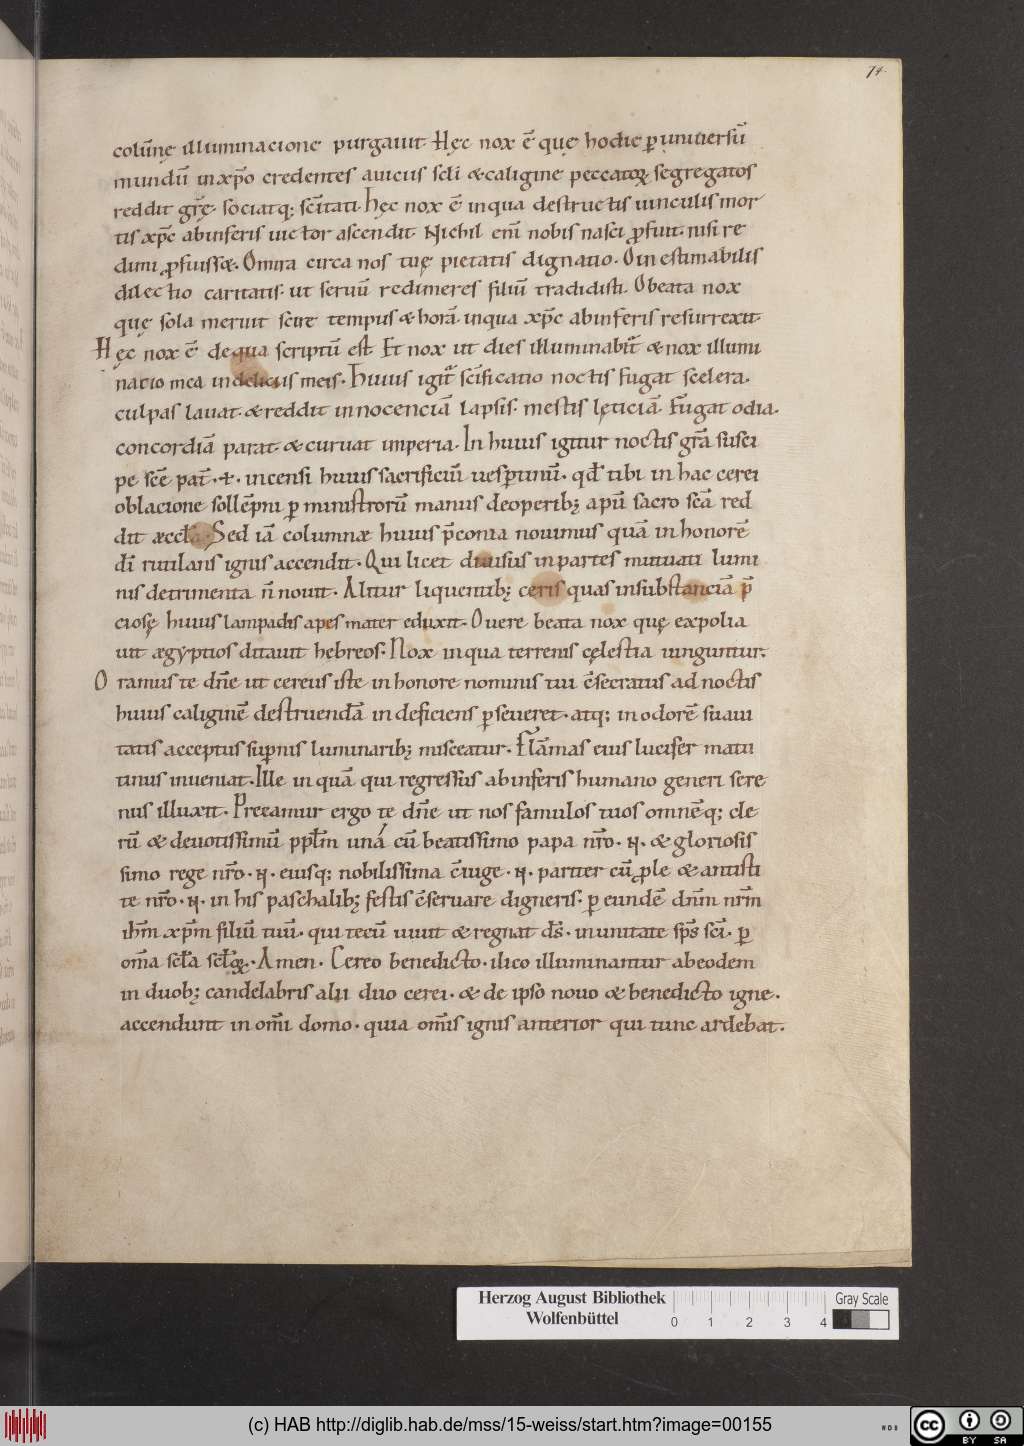 74.
colūnę illuminacione purgauit. Hęc nox ē quę hodie p uniuersū
mundū in xp̄o credentes a uiciis scl̄i & caligine peccatoꝝ segregatos
reddit gr̄ę. sociatq; sc̄itati. hęc nox ē in qua destructis uinculis mor
tis xp̄c ab inferis uictor ascendit. Nichil eni̅ nobis nasci ꝓfuit. nisi re
dimi ꝓfuiss&. O mira circa nos tuę pietatis dignatio. O inestimabilis
dilectio caritatis. ut seruū redimeres filiū tradidisti. O beata nox
quę sola meruit scire tempus & horā. in qua xp̄c ab inferis resurrexit.
Hęc nox ē de qua scriptū est. Et nox ut dies illuminabit̄ & nox illumi
nacio mea in deliciis meis. Huius igit̄ sc̄ificatio noctis fugat scelera.
culpas lauat. & reddit innocenciā lapsis. mestis lęticiā. Fugat odia.
concordiā parat. & curuat imperia. In huius igitur noctis gr̄a susci
pe sc̄e pat̄. +. incensi huius sacrificiū uesp̱tinū. qd̄ tibi in hac cerei
oblacione sollēpni p̱ ministrorū manus de operibꝫ apū sacro sc̄a red
dit æccl̄a. Sed iā columnæ huius p̄conia nouimus quā in honorē
dī rutilans ignis accendit. Qui licet diuisus in partes mutuati lumi
nis detrimenta n̄ nouit. Alitur liquentibꝫ ceris quas in substanciā p̄
ciosę huius lampadis apes mater eduxit. O uere beata nox quę expolia
uit ægyptios ditauit hebreos. Nox in qua terrenis cęlestia iunguntur.
Oramus te dn̄e ut cereus iste in honore nominis tui c̄secratus ad noctis
huius caliginē destruendā indeficiens p̱seueret. atq; in odorē suaui
tatis acceptus sup̱nis luminaribꝫ misceatur. Flāmas eius lucifer matu
tinus inueniat. Ille inquā qui regressus ab inferis humano generi sere
nus illuxit. Precamur ergo te dn̄e ut nos famulos tuos omnēq; cle
rū & deuotissimū ppl̄m unā cū beatissimo papa nr̄o. N. & gloriosis
simo rege nr̄o. N. eiusq; nobilissima c̄iuge. N. pariter cū ꝓle & antisti
te nr̄o. N. in his paschalibꝫ festis c̄seruare digneris. p̱ eundē dn̄m nr̄m
ih̄m xp̄m filiū tuū. qui tecū uiuit & regnat ds̄. in unitate sp̄s sc̄i. p̱
om̄a scl̄a scl̄oꝝ. Amen. Cereo benedicto. ilico illuminantur ab eodem
in duobꝫ candelabris alii duo cerei. & de ipso nouo & benedicto igne.
accendunt in om̄i domo. quia om̄is ignis anterior qui tunc ardebat.
Herzog August Bibliothek
Wolfenbüttel
0 1 2 3 4
Gray Scale
(c) HAB http://diglib.hab.de/mss/15-weiss/start.htm?image=00155
cc BY SA